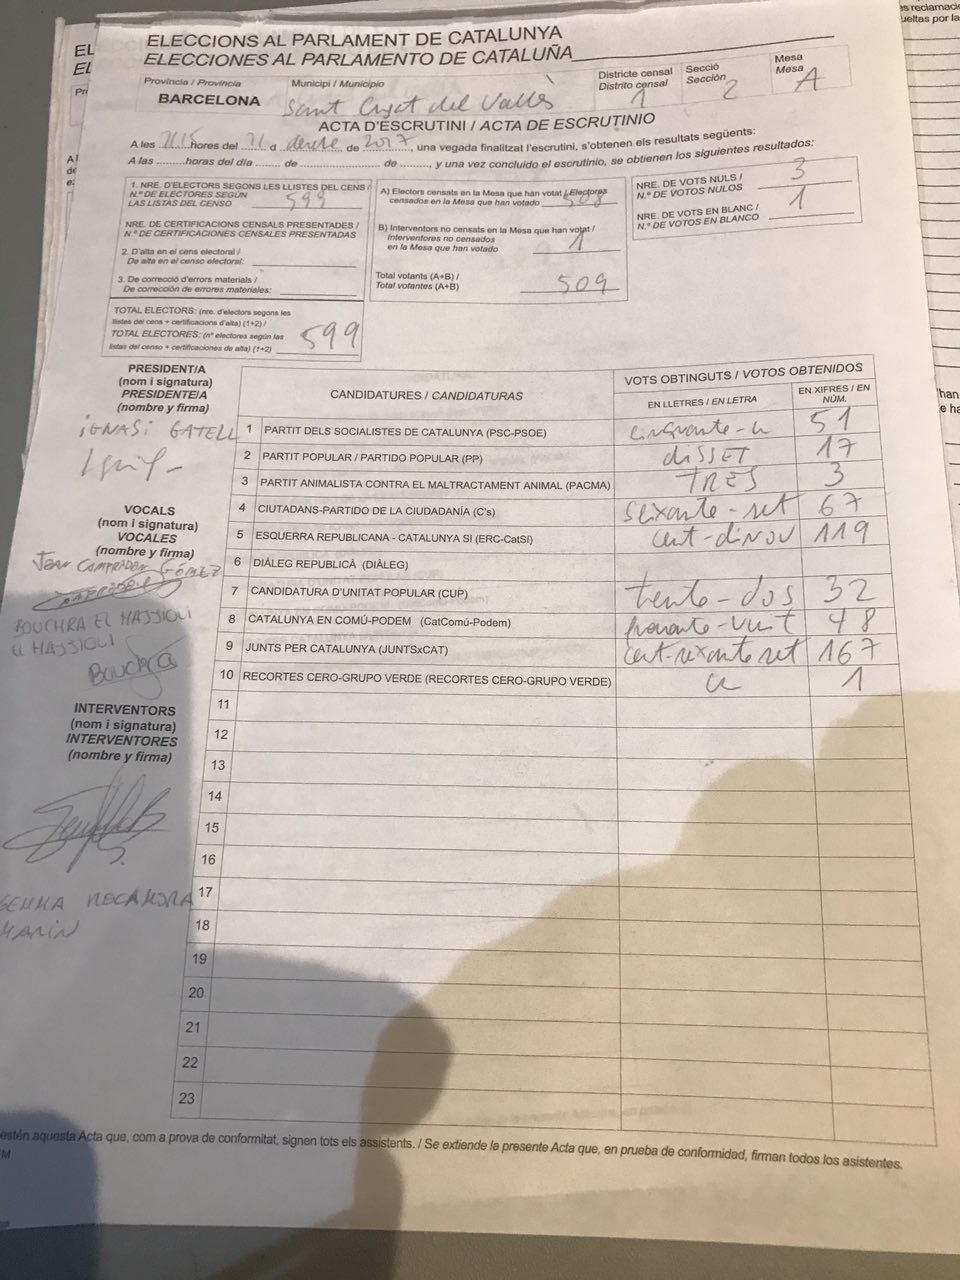 ELECCIONS AL PARLAMENT DE CATALUNYA
ELECCIONES AL PARLAMENTO DE CATALUÑA
Província / Provincia
BARCELONA
Municipi / Municipio
Sant Cugat del Vallès
Districte censal
Distrito censal
1
Secció
Sección
2
Mesa
Mesa
A
ACTA D'ESCRUTINI / ACTA DE ESCRUTINIO
A les hores del 21 d de 2017, una vegada finalitzat l'escrutini, s'obtenen els resultats següents:
A las .........horas del día ....... de ............... de ........, y una vez concluido el escrutinio, se obtienen los siguientes resultados:
1. NRE. D'ELECTORS SEGONS LES LLISTES DEL CENS /
N.º DE ELECTORES SEGÚN
LAS LISTAS DEL CENSO 599
NRE. DE CERTIFICACIONS CENSALS PRESENTADES /
N.º DE CERTIFICACIONES CENSALES PRESENTADAS
2. D'alta en el cens electoral /
De alta en el censo electoral:
3. De correcció d'errors materials /
De corrección de errores materiales:
TOTAL ELECTORS: (nre. d'electors segons les
llistes del cens + certificacions d'alta) (1+2) /
TOTAL ELECTORES: (nº electores según las
listas del censo + certificaciones de alta) (1+2) 599
A) Electors censats en la Mesa que han votat / Electores
censados en la Mesa que han votado 508
B) Interventors no censats en la Mesa que han votat /
Interventores no censados
en la Mesa que han votado 1
Total votants (A+B) /
Total votantes (A+B) 509
NRE. DE VOTS NULS /
N.º DE VOTOS NULOS 3
NRE. DE VOTS EN BLANC /
N.º DE VOTOS EN BLANCO 1
PRESIDENT/A
(nom i signatura)
PRESIDENTE/A
(nombre y firma)
IGNASI GATELL
VOCALS
(nom i signatura)
VOCALES
(nombre y firma)
GÓMEZ
BOUCHRA EL HASSIOLI
EL HASSIOLI
Bouchra
INTERVENTORS
(nom i signatura)
INTERVENTORES
(nombre y firma)
GEMMA ROCAMORA
MARIN
CANDIDATURES / CANDIDATURAS
VOTS OBTINGUTS / VOTOS OBTENIDOS
EN LLETRES / EN LETRA
EN XIFRES / EN NÚM.
1 PARTIT DELS SOCIALISTES DE CATALUNYA (PSC-PSOE) cinquanta-u 51
2 PARTIT POPULAR / PARTIDO POPULAR (PP) DISSET 17
3 PARTIT ANIMALISTA CONTRA EL MALTRACTAMENT ANIMAL (PACMA) TRES 3
4 CIUTADANS-PARTIDO DE LA CIUDADANÍA (C's) seixanta-set 67
5 ESQUERRA REPUBLICANA - CATALUNYA SI (ERC-CatSí) cent-dinou 119
6 DIÀLEG REPUBLICÀ (DIÀLEG)
7 CANDIDATURA D'UNITAT POPULAR (CUP) trenta-dos 32
8 CATALUNYA EN COMÚ-PODEM (CatComú-Podem) quaranta-vuit 48
9 JUNTS PER CATALUNYA (JUNTSxCAT) cent-seixanta set 167
10 RECORTES CERO-GRUPO VERDE (RECORTES CERO-GRUPO VERDE) u 1
11
12
13
14
15
16
17
18
19
20
21
22
23
estén aquesta Acta que, com a prova de conformitat, signen tots els assistents. / Se extiende la presente Acta que, en prueba de conformidad, firman todos los asistentes.